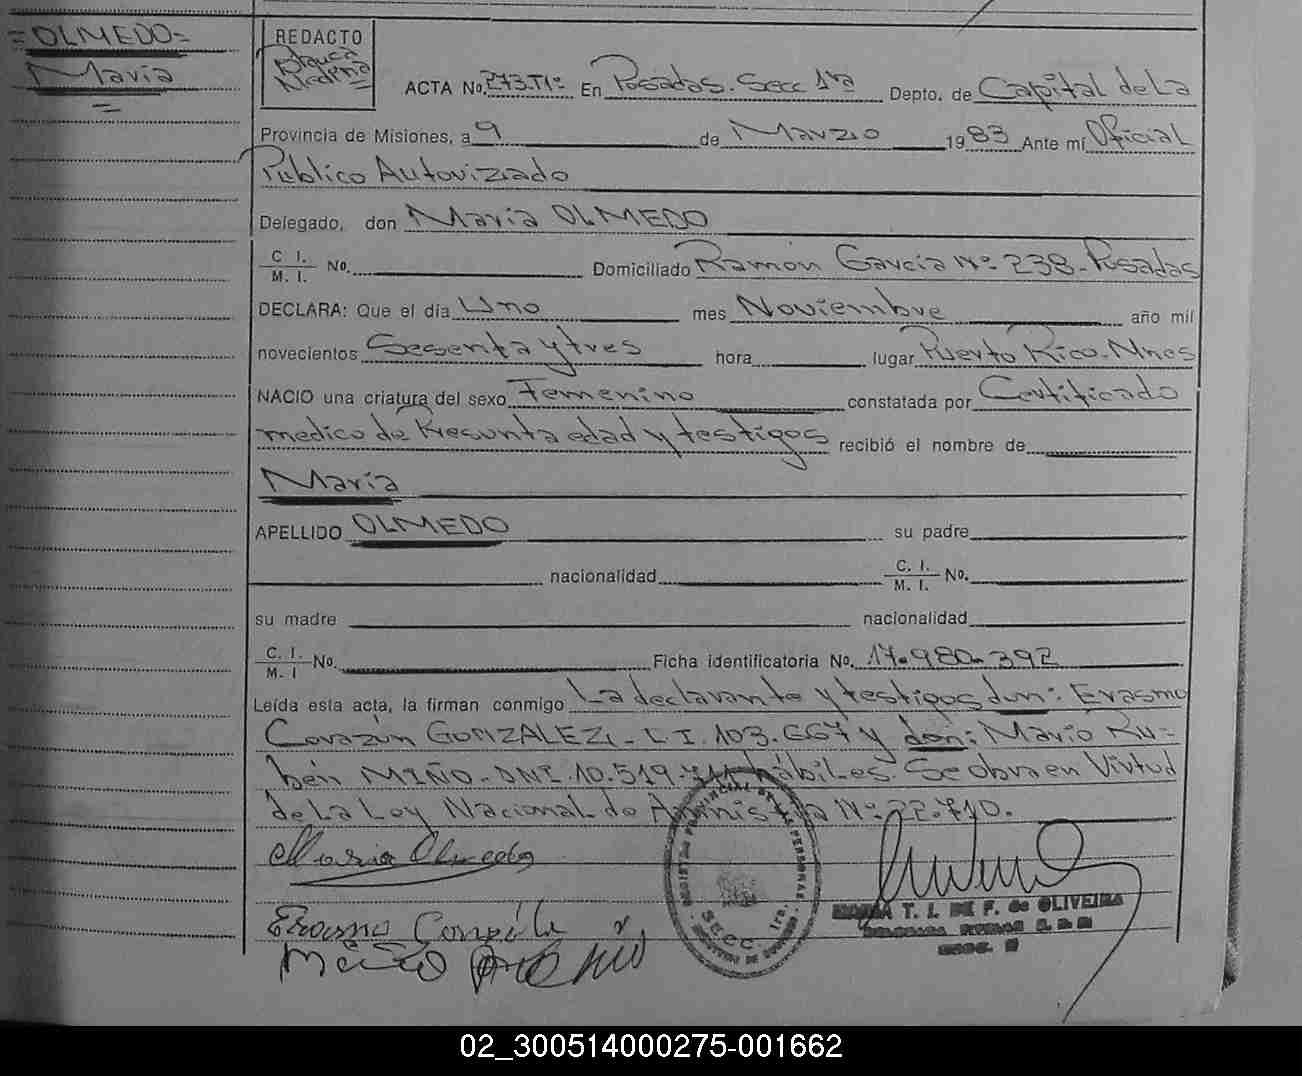 =OLMEDO=
María
REDACTO
ACTA No. 273.TIº En Posadas. Secc 1ra Depto. de Capital de La
Provincia de Misiones, a 9 de Marzo 1983 Ante mí Oficial
Público Autorizado
Delegado, don María OLMEDO
C I. M. I. No. Domiciliado Ramón García Nº 238 - Posadas
DECLARA: Que el día Uno mes Noviembre año mil
novecientos Sesenta y tres hora lugar Puerto Rico - Mnes
NACIO una criatura del sexo Femenino constatada por Certificado
medico de Presunta edad y testigos recibió el nombre de
María
APELLIDO OLMEDO su padre
nacionalidad C. I. M. I. No.
su madre nacionalidad
C. I. M. I No. Ficha identificatoria No. 17.980.392
Leída esta acta, la firman conmigo La declarante y testigos don: Erasmo
Corazón GONZALEZ - L I. 103.667 y don: Mario Ru=
bén MIÑO - DNI. 10.519. hábiles. Se obra en Virtud
de La Ley Nacional de Amnistía Nº 22.710.
María Olmedo
Erasmo
REGISTRO PROVINCIAL DE LAS PERSONAS
SECC. 1ra.
T. I. DE F. de OLIVEIRA
02_300514000275-001662